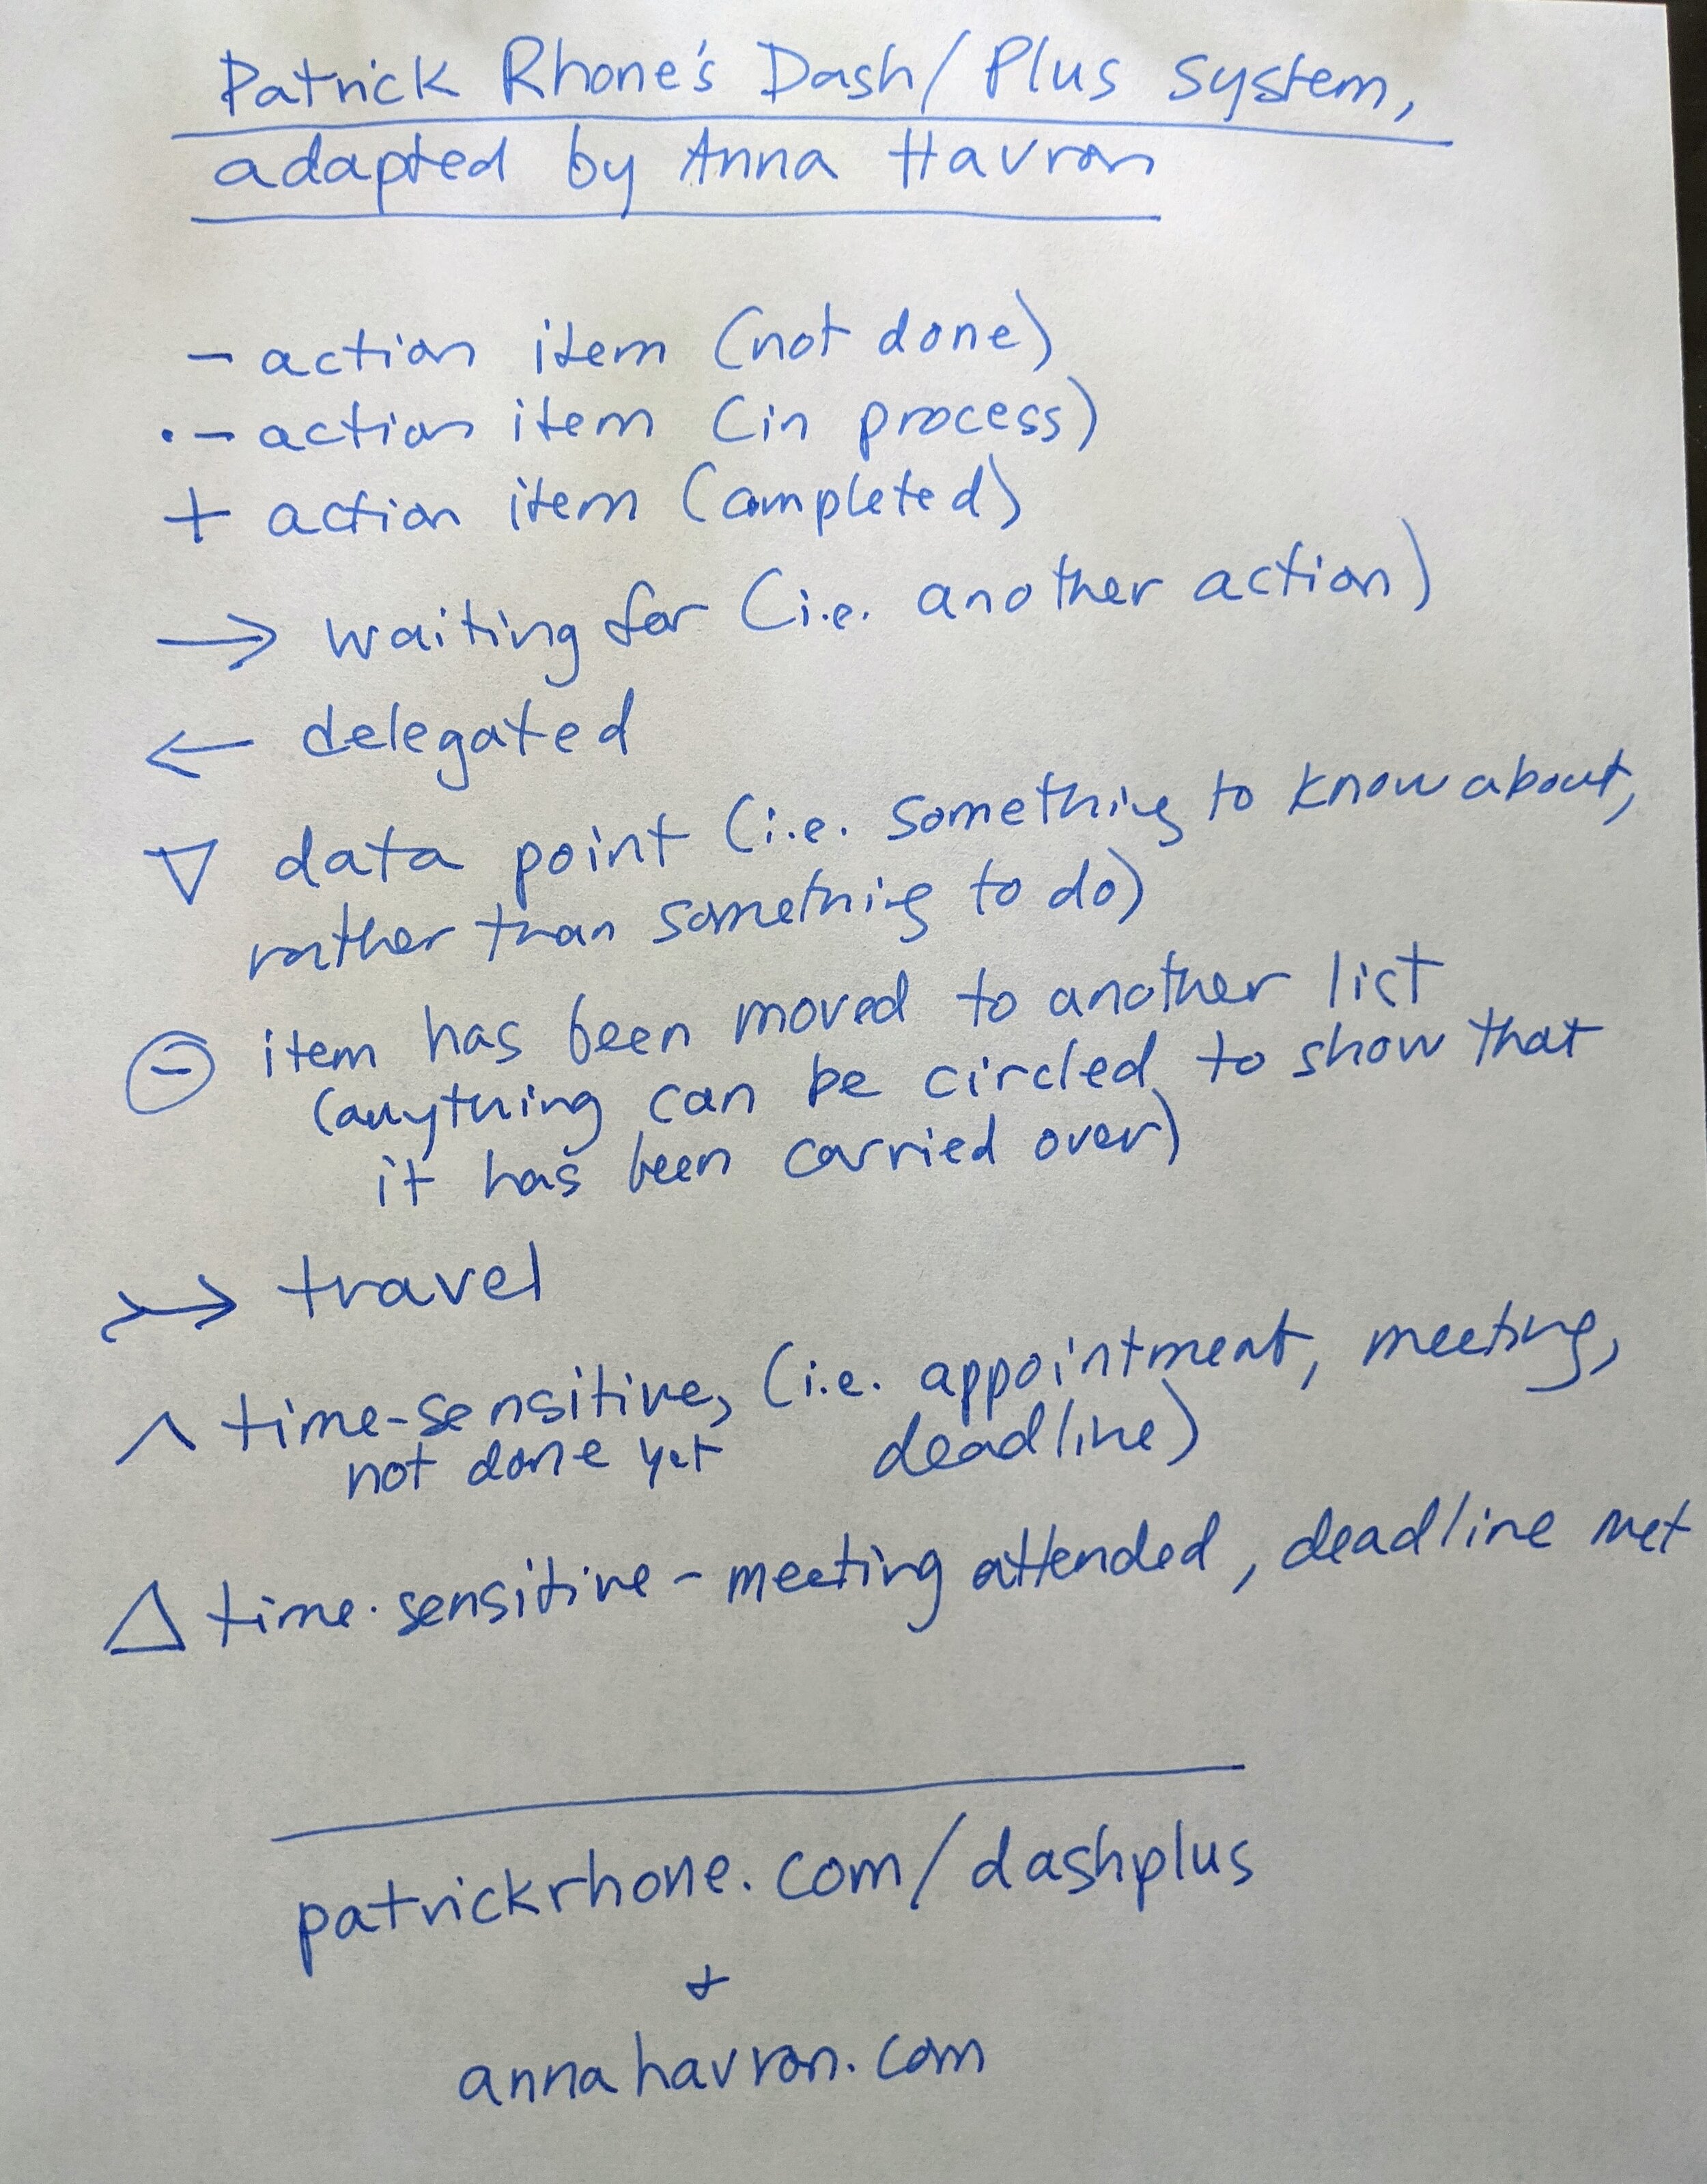 Patrick Rhone's Dash/Plus System,
adapted by Anna Havron
– action item (not done)
•– action item (in process)
+ action item (completed)
→ waiting for (i.e. another action)
← delegated
▽ data point (i.e. something to know about,
rather than something to do)
⊖ item has been moved to another list
(anything can be circled to show that
it has been carried over)
↣ travel
∧ time-sensitive, (i.e. appointment, meeting,
not done yet deadline)
△ time-sensitive – meeting attended, deadline met
patrickrhone.com/dashplus
+
annahavron.com